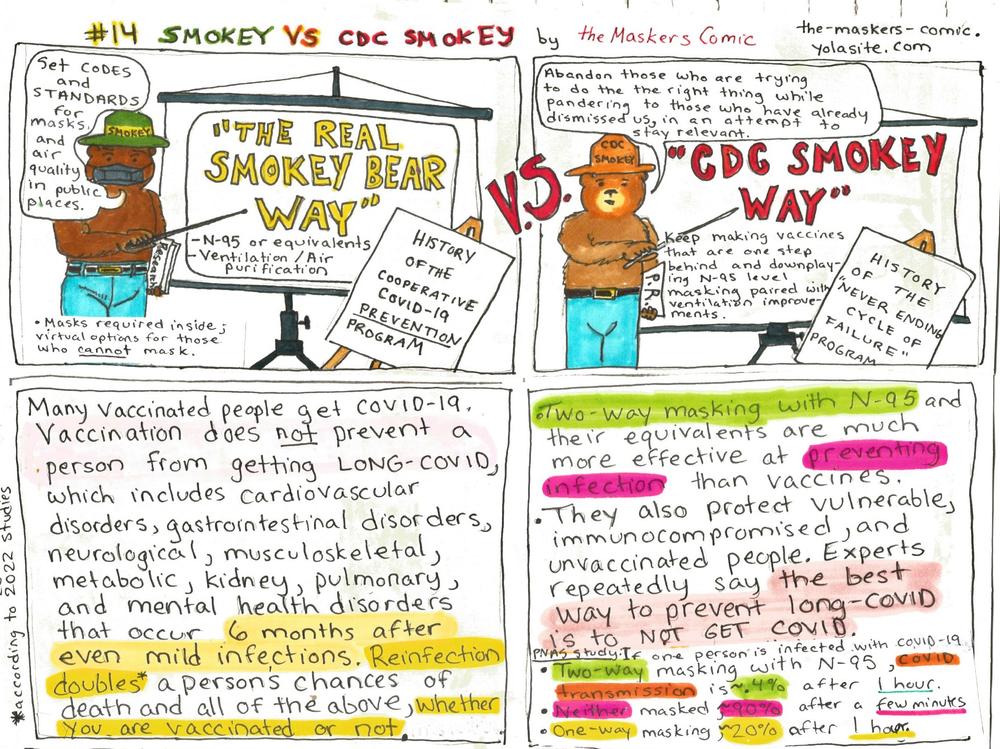 #14 SMOKEY VS CDC SMOKEY by the Maskers Comic
the-maskers-comic.
yolasite.com
Set CODES
and
STANDARDS
for
masks,
and
air
quality
in public
places.
SMOKEY
"THE REAL
SMOKEY BEAR
WAY"
-N-95 or equivalents
-Ventilation/Air
purification
Research
HISTORY
OF THE
COOPERATIVE
COVID-19
PREVENTION
PROGRAM
• Masks required inside;
virtual options for those
who cannot mask.
V.S.
Abandon those who are trying
to do the the right thing while
pandering to those who have already
dismissed us, in an attempt to
stay relevant.
CDC
SMOKEY
"CDC SMOKEY
WAY"
Keep making vaccines
that are one step
behind and downplay-
ing N-95 level
masking paired with
ventilation improve-
ments.
P.R.
HISTORY
OF THE
"NEVER ENDING
CYCLE OF
FAILURE"
PROGRAM
Many vaccinated people get COVID-19.
Vaccination does not prevent a
person from getting LONG-COVID,
which includes cardiovascular
disorders, gastrointestinal disorders,
neurological, musculoskeletal,
metabolic, kidney, pulmonary,
and mental health disorders
that occur 6 months after
even mild infections. Reinfection
doubles* a person's chances of
death and all of the above, whether
you are vaccinated or not.
*according to 2022 studies
• Two-way masking with N-95 and
their equivalents are much
more effective at preventing
infection than vaccines.
• They also protect vulnerable,
immunocompromised, and
unvaccinated people. Experts
repeatedly say the best
way to prevent long-COVID
is to NOT GET COVID.
PNAS study: If one person is infected with COVID-19
• Two-way masking with N-95, COVID
transmission is ~.4% after 1 hour.
• Neither masked, ~90% after a few minutes
• One-way masking, ~20% after 1 hour.